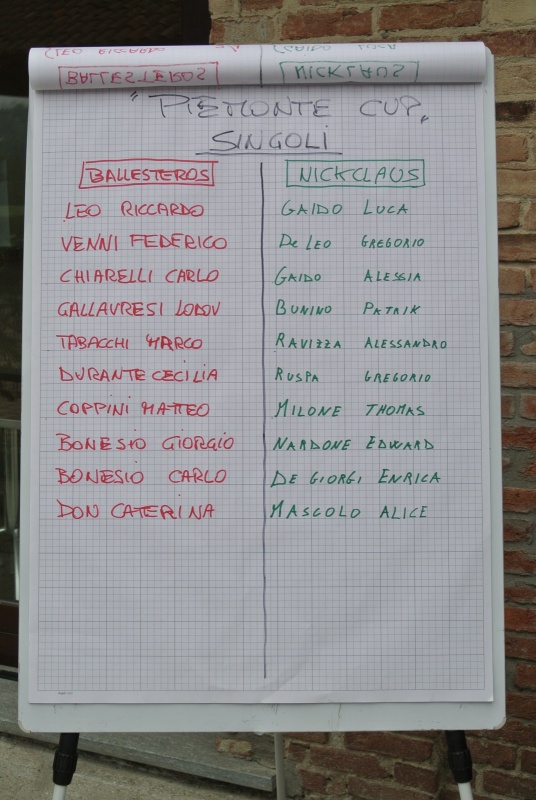 LEO RICCARDO GAIDO LUCA
BALLESTEROS NICKLAUS
"PIEMONTE CUP"
SINGOLI
BALLESTEROS NICKCLAUS
LEO RICCARDO GAIDO LUCA
VENNI FEDERICO De LEO GREGORIO
CHIARELLI CARLO GAIDO ALESSIA
GALLAVRESI LODOV BUNINO PATRIK
TABACCHI MARCO RAVIZZA ALESSANDRO
DURANTE CECILIA RUSPA GREGORIO
COPPINI MATTEO MILONE THOMAS
BONESIO GIORGIO NARDONE EDWARD
BONESIO CARLO DE GIORGI ENRICA
DON CATERINA MASCOLO ALICE